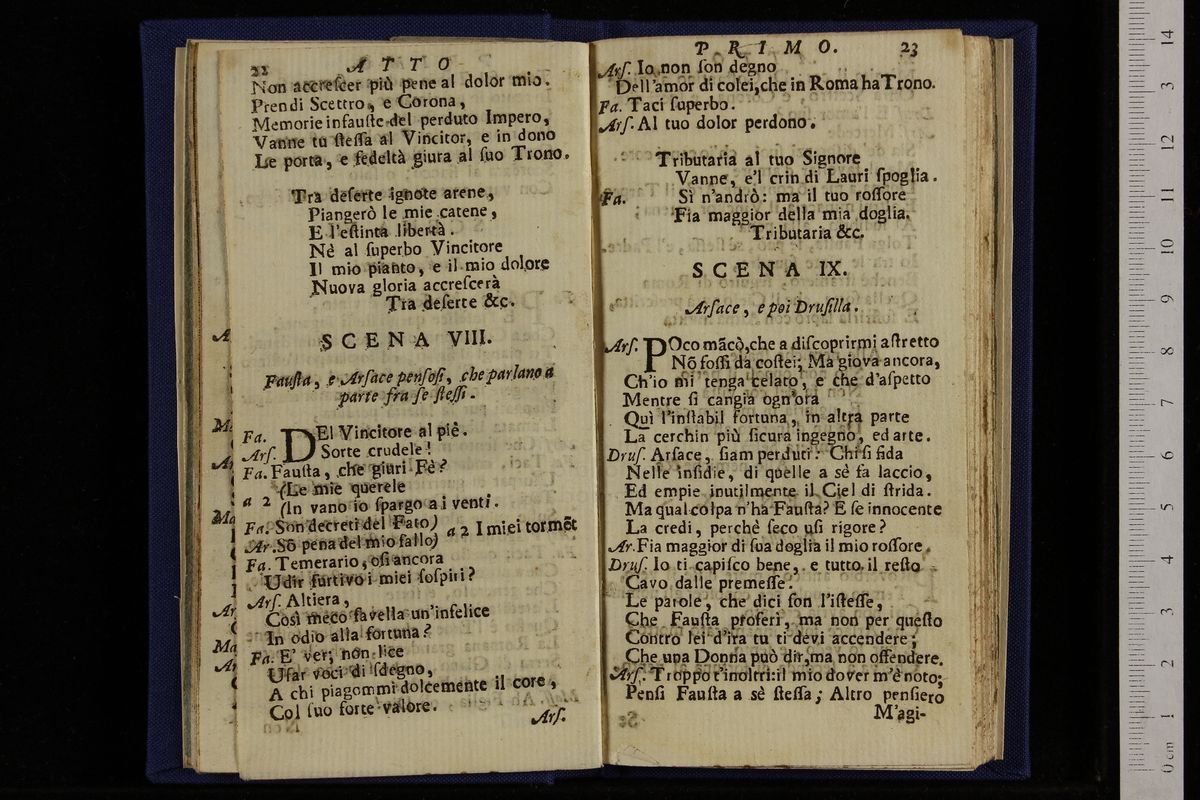 22 ATTO
Non accreſcer più pene al dolor mio.
Prendi Scettro, e Corona,
Memorie infauſte del perduto Impero,
Vanne tu ſteſſa al Vincitor, e in dono
Le porta, e fedeltà giura al ſuo Trono.
Tra deſerte ignote arene,
Piangerò le mie catene,
E l'eſtinta libertà.
Nè al ſuperbo Vincitore
Il mio pianto, e il mio dolore
Nuova gloria accreſcerà
Tra deſerte &c.
SCENA VIII.
Fauſta, e Arſace penſoſi, che parlano a
parte fra ſe ſteſſi.
Fa. DEl Vincitore al piè.
Arſ. Sorte crudele!
Fa. Fauſta, che giuri Fè?
a 2 (Le mie querele
(In vano io ſpargo a i venti.
Fa. Son decreti del Fato)
Ar. Sõ pena del mio fallo) a 2 I miei tormẽt
Fa. Temerario, oſi ancora
Udir furtivo i miei ſoſpiri?
Arſ. Altiera,
Così meco favella un'infelice
In odio alla fortuna?
Fa. E' ver; non lice
Uſar voci di ſdegno,
A chi piagommi dolcemente il core,
Col ſuo forte valore.
Arſ.
PRIMO. 23
Arſ. Io non ſon degno
Dell'amor di colei, che in Roma ha Trono.
Fa. Taci ſuperbo.
Arſ. Al tuo dolor perdono.
Tributaria al tuo Signore
Vanne, e'l crin di Lauri ſpoglia.
Fa. Sì n'andrò: ma il tuo roſſore
Fia maggior della mia doglia.
Tributaria &c.
SCENA IX.
Arſace, e poi Druſilla.
Arſ. POco mãcò, che a diſcoprirmi aſtretto
Nõ foſſi da coſtei; Ma giova ancora,
Ch'io mi tenga celato, e che d'aſpetto
Mentre ſi cangia ogn'ora
Quì l'inſtabil fortuna, in altra parte
La cerchin più ſicura ingegno, ed arte.
Druſ. Arſace, ſiam perduti: Chi ſi fida
Nelle inſidie, di quelle a sè fa laccio,
Ed empie inutilmente il Ciel di ſtrida.
Ma qual colpa n'ha Fauſta? E ſe innocente
La credi, perchè ſeco uſi rigore?
Ar. Fia maggior di ſua doglia il mio roſſore.
Druſ. Io ti capiſco bene, e tutto il reſto
Cavo dalle premeſſe.
Le parole, che dici ſon l'iſteſſe,
Che Fauſta proferì, ma non per queſto
Contro lei d'ira tu ti devi accendere;
Che una Donna può dir, ma non offendere.
Arſ. Troppo t'inoltri: il mio dover m'è noto;
Penſi Fauſta a sè ſteſſa; Altro penſiero
M'agi-